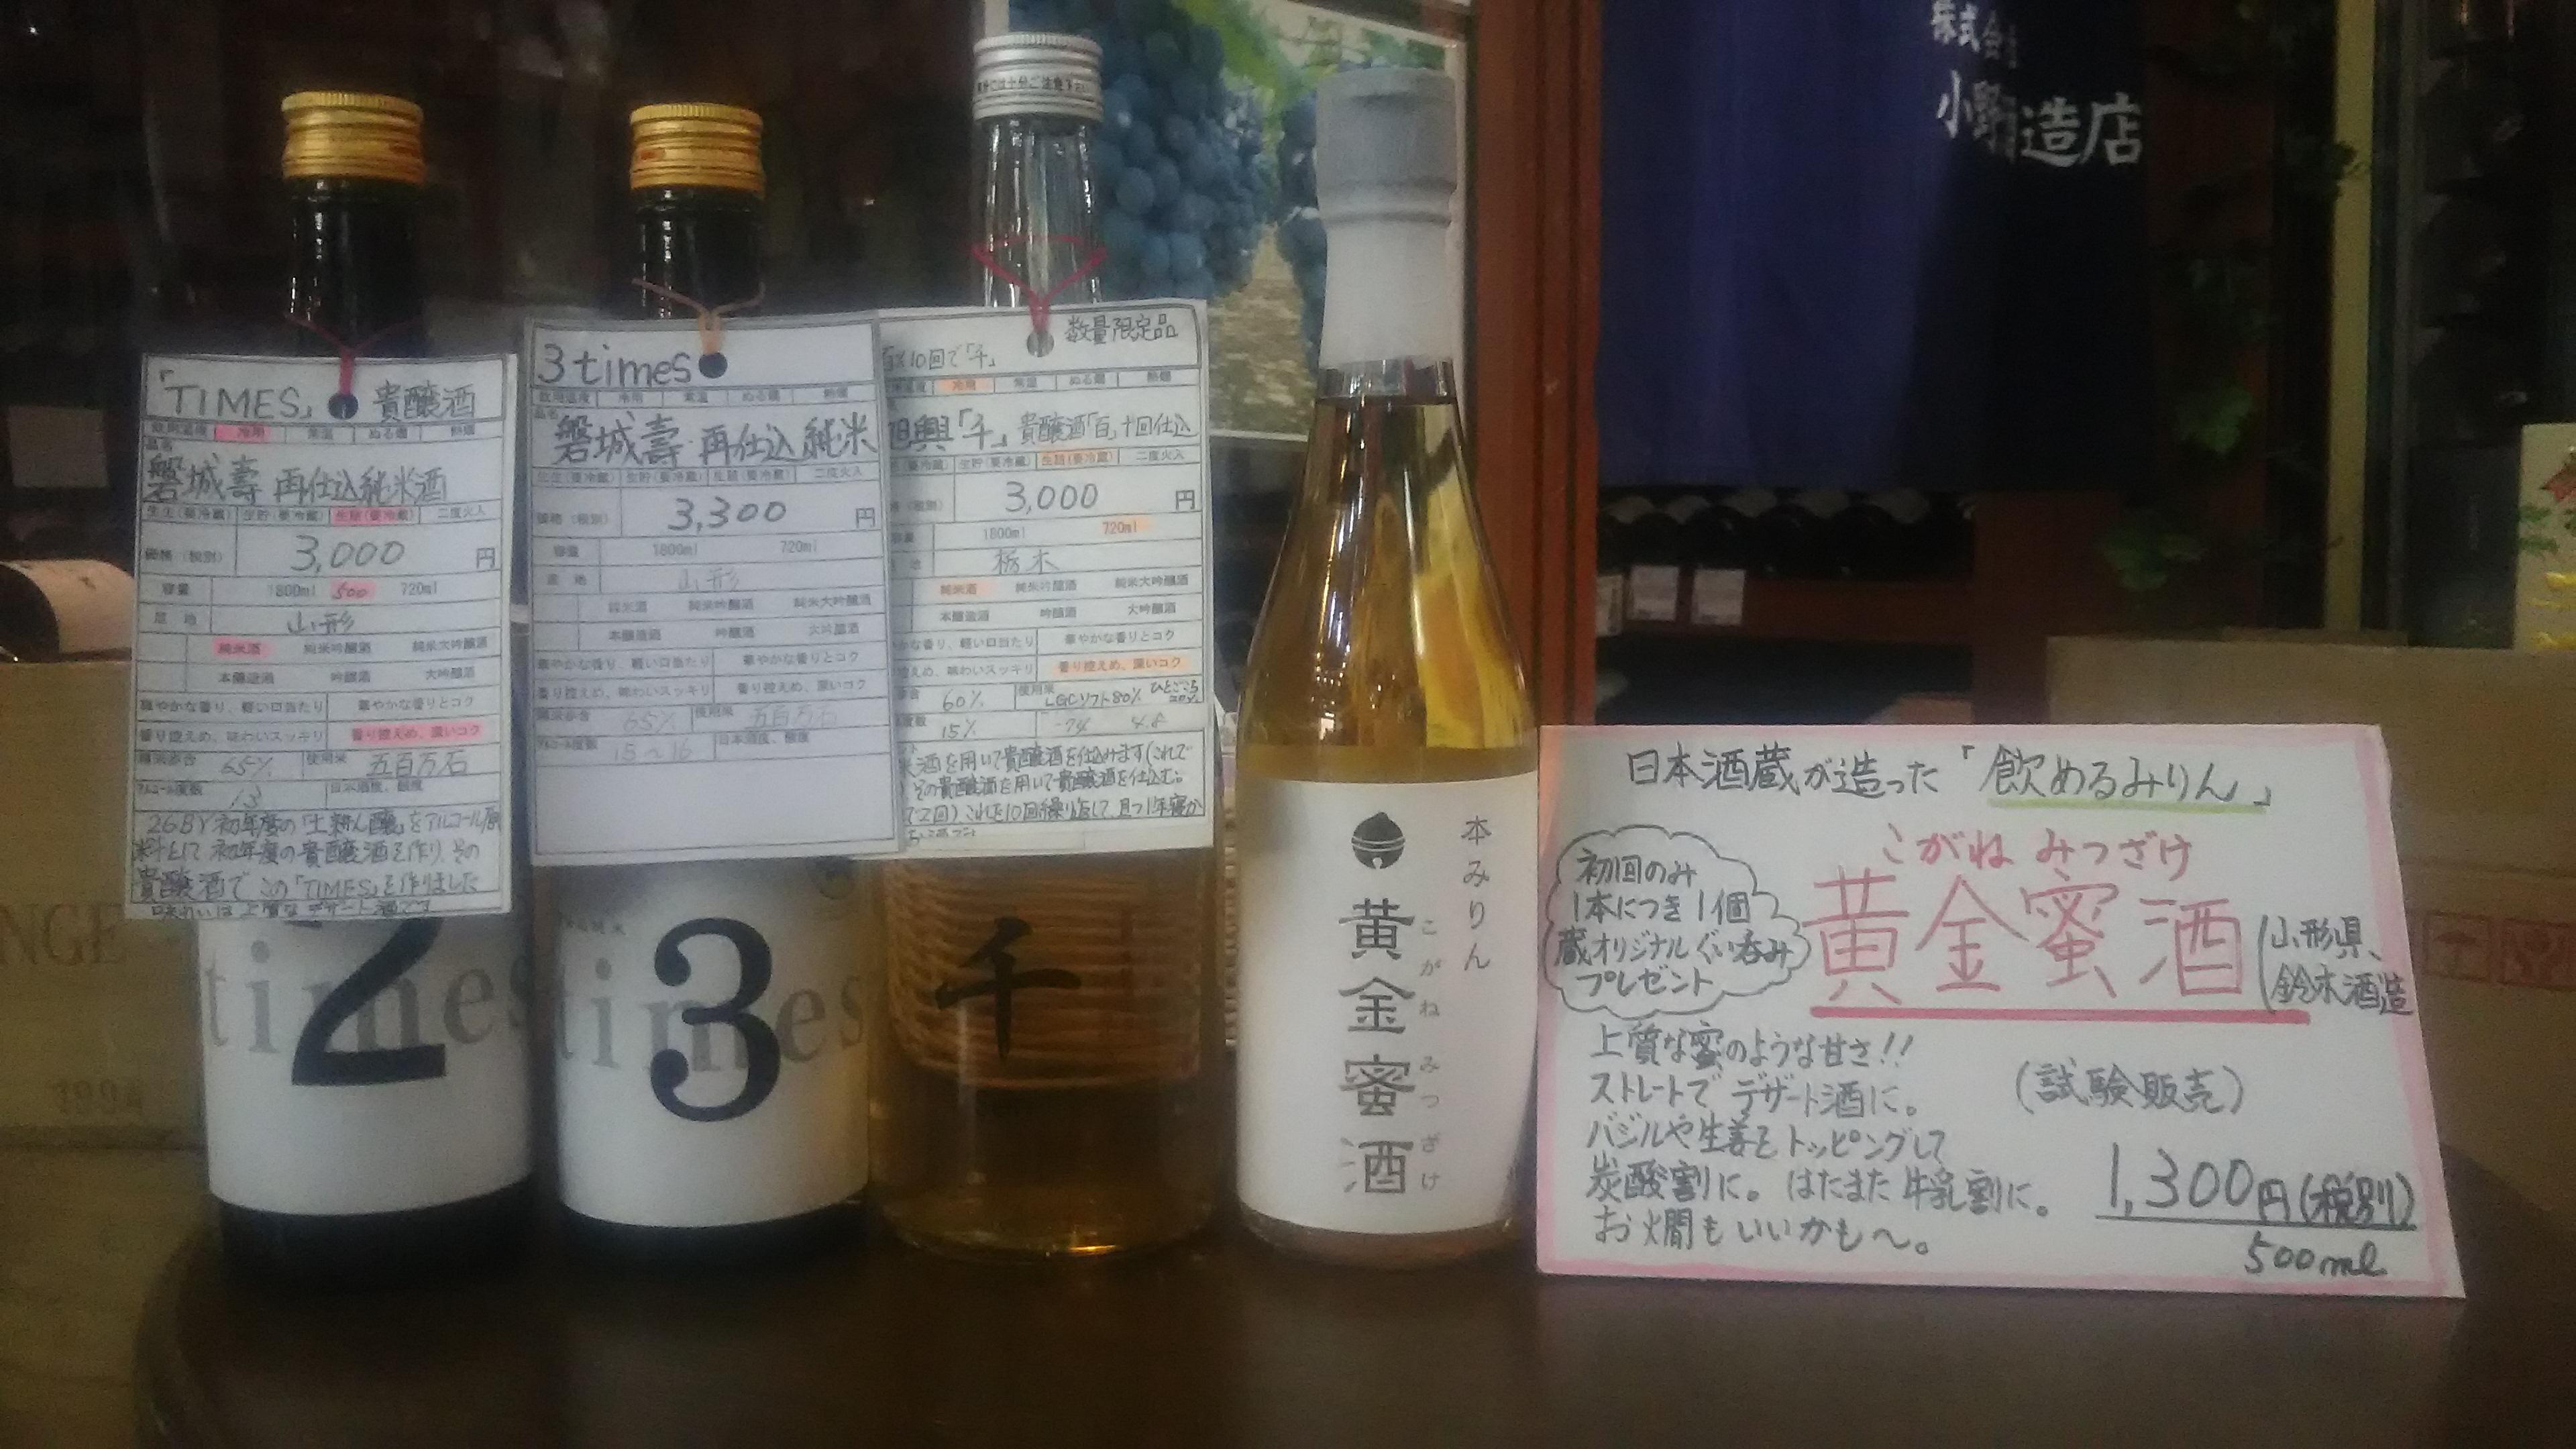 株式会社
小野 造店
「TIMES」 貴醸酒
飲用温度 冷用 常温 ぬる燗 熱燗
品名
磐城壽 再仕込純米酒
生生(要冷蔵) 生貯(要冷蔵) 生詰(要冷蔵) 二度火入
価格(税別) 3,000 円
容量 1800ml 500 720ml
産地 山形
純米酒 純米吟醸酒 純米大吟醸酒
本醸造酒 吟醸酒 大吟醸酒
華やかな香り、軽い口当たり 華やかな香りとコク
香り控えめ、味わいスッキリ 香り控えめ、深いコク
精米歩合 65% 使用米 五百万石
アルコール度数 13 日本酒度、酸度
26BY初年度の「土耕ん醸」をアルコール原
料として初年度の貴醸酒を作り、その
貴醸酒でこの「TIMES」を作りました
味わいは上質なデザート酒です
2
times
3times
飲用温度 冷用 常温 ぬる燗 熱燗
品名
磐城壽 再仕込 純米
生生(要冷蔵) 生貯(要冷蔵) 生詰(要冷蔵) 二度火入
価格(税別) 3,300 円
容量 1800ml 720ml
産地 山形
純米酒 純米吟醸酒 純米大吟醸酒
本醸造酒 吟醸酒 大吟醸酒
華やかな香り、軽い口当たり 華やかな香りとコク
香り控えめ、味わいスッキリ 香り控えめ、深いコク
精米歩合 65% 使用米 五百万石
アルコール度数 15~16 日本酒度、酸度
3
times
数量限定品
百x10回で「千」
冷用 常温 ぬる燗 熱燗
旭興「千」 貴醸酒「百」十回仕込
(要冷蔵) 生貯(要冷蔵) 生詰(要冷蔵) 二度火入
(税別) 3,000 円
容量 1800ml 720ml
地 栃木
純米酒 純米吟醸酒 純米大吟醸酒
本醸造酒 吟醸酒 大吟醸酒
やかな香り、軽い口当たり 華やかな香りとコク
控えめ、味わいスッキリ 香り控えめ、深いコク
歩合 60% 使用米 LGCソフト80% ひとごこち20%
度数 15% -74 4.8
米酒を用いて貴醸酒を仕込みます(これで
その貴醸酒を用いて貴醸酒を仕込む。
で2回)これを10回繰り返して、且つ1年寝か
千
本みりん
黄金蜜酒
こがねみつざけ
日本酒蔵が造った「飲めるみりん」
こがね みつざけ
黄金蜜酒
(山形県、
鈴木酒造
初回のみ
1本につき1個
蔵オリジナルぐい呑み
プレゼント
上質な蜜のような甘さ!!
ストレートでデザート酒に。
バジルや生姜をトッピングして
炭酸割に。はたまた牛乳割に。
お燗もいいかも～。
(試験販売)
1,300円(税別)
500ml
1994